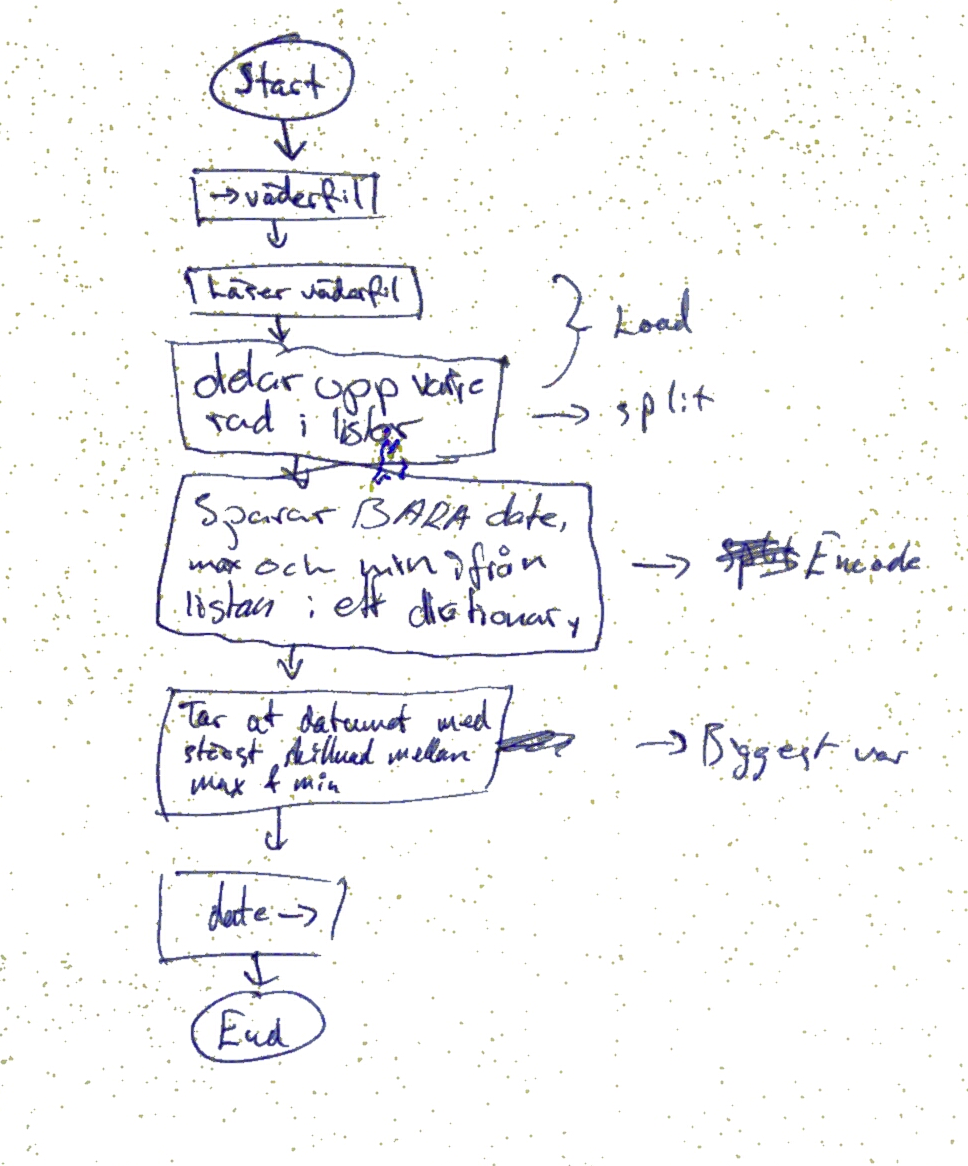 Start
→väderfil
Läser väderfil
Load
delar upp varje
rad i listor
→ split
Sparar BARA date,
max och min ifrån
listan i ett dictionary
→ Encode
Tar at datumet med
störst skillnad mellan
max & min
→ Biggest var
date →
End